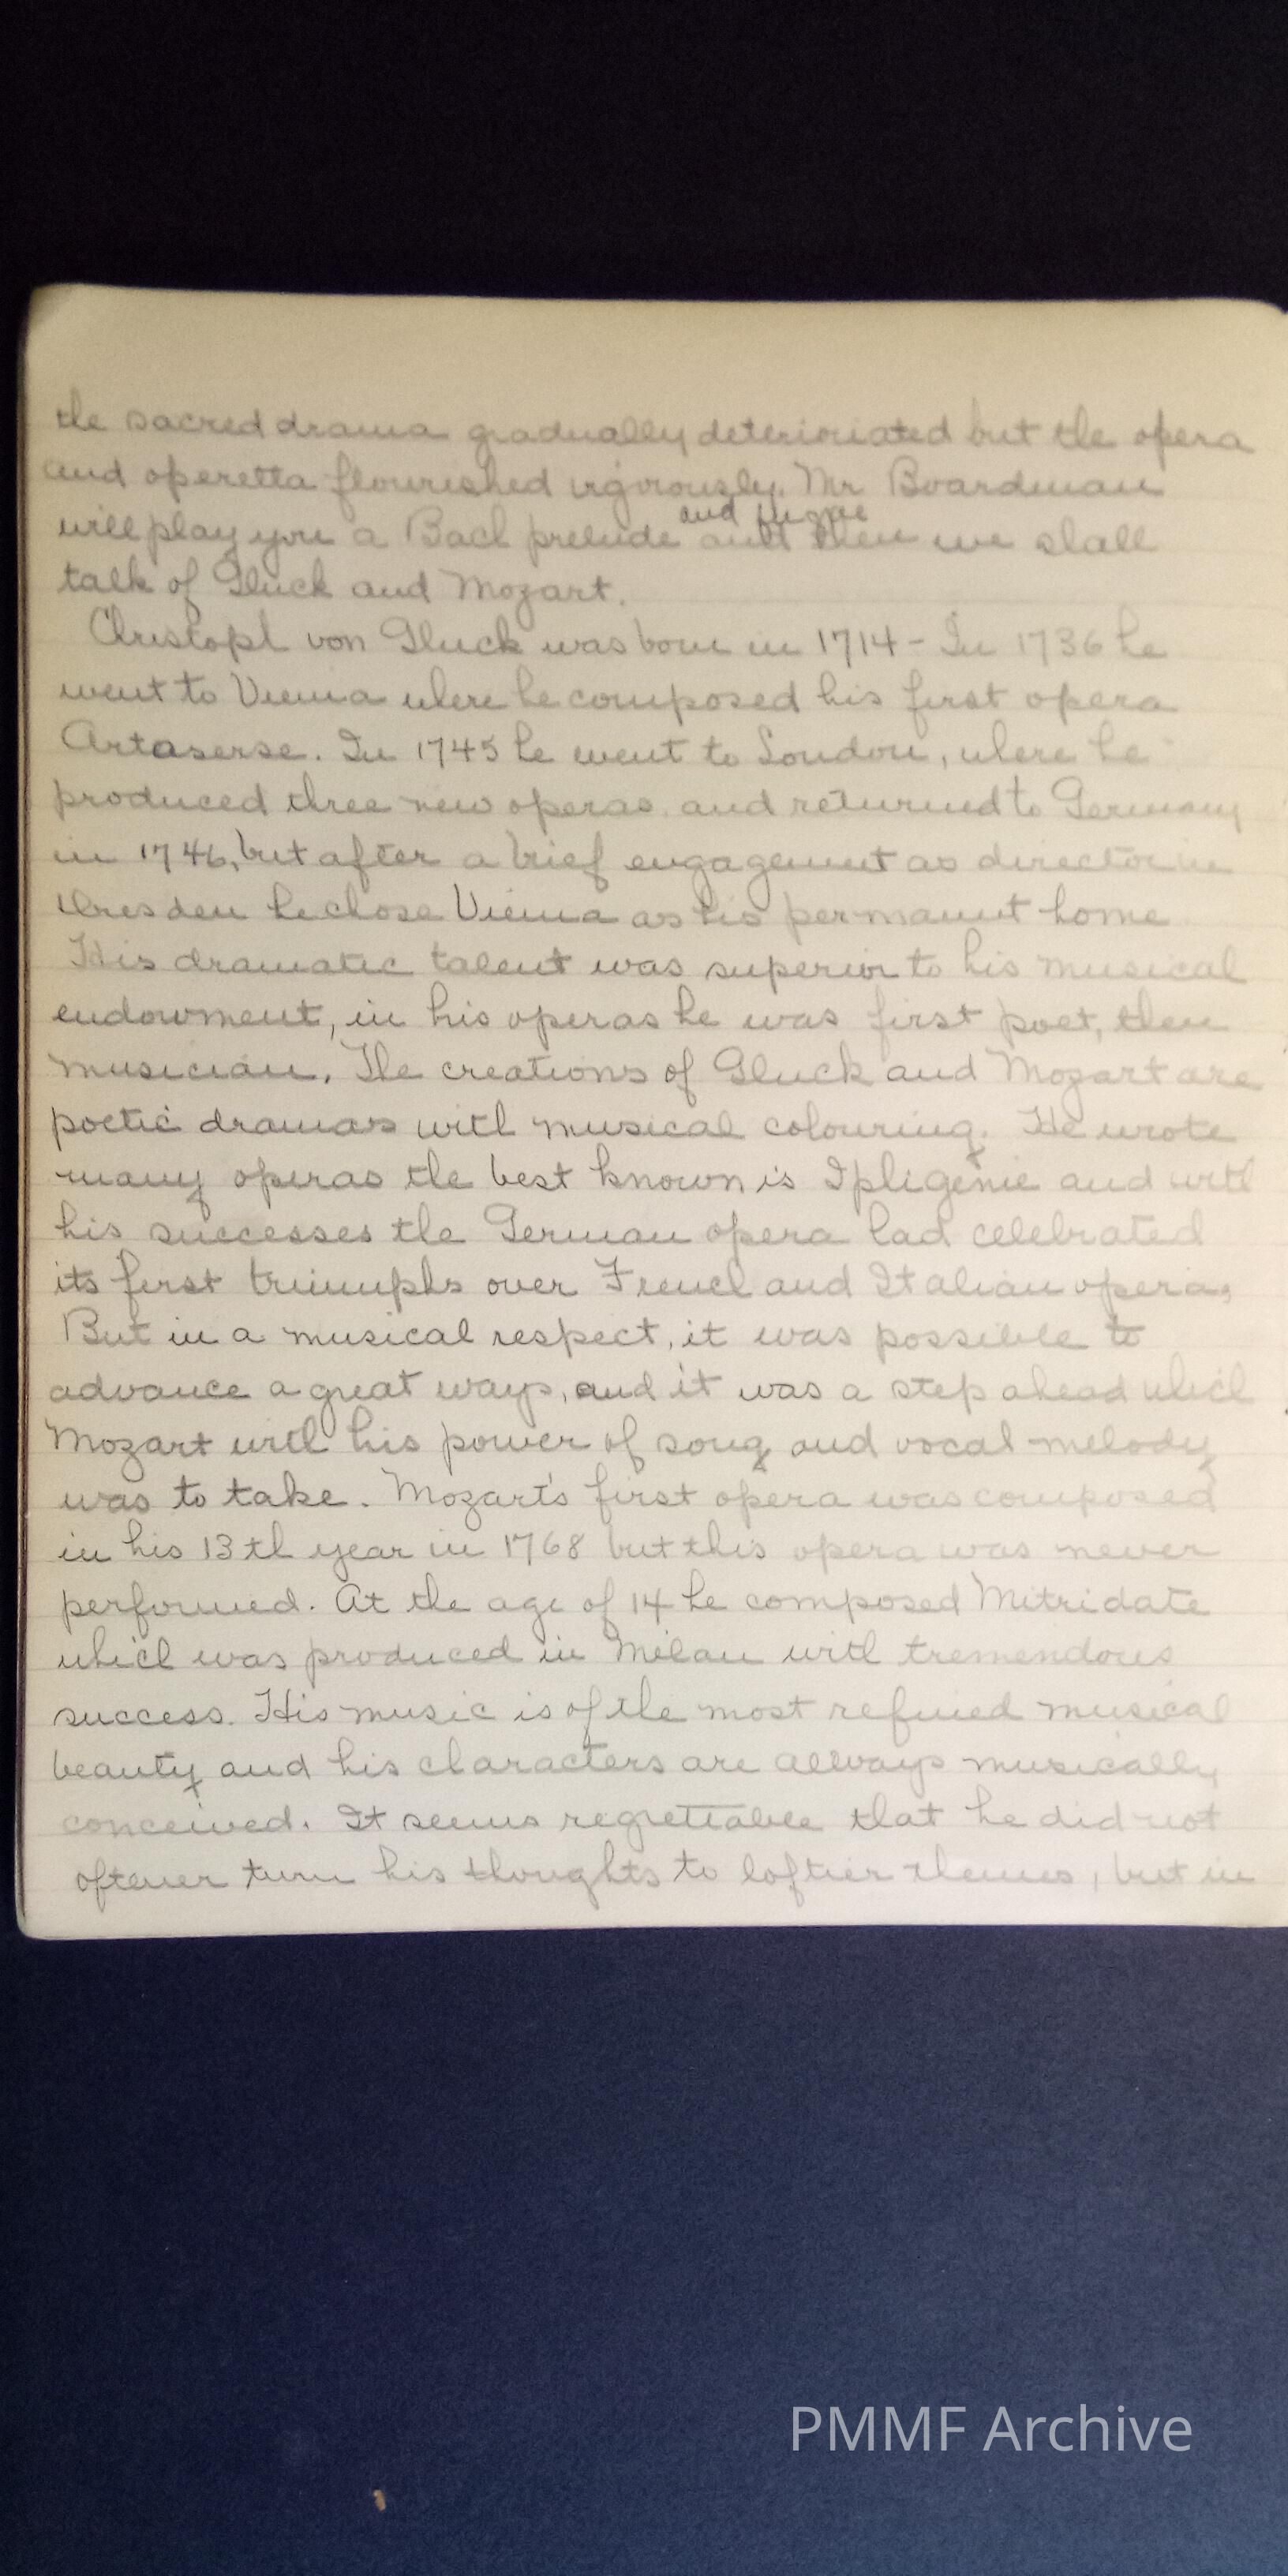 the sacred drama gradually deterioriated but the opera
and operetta flourished vigorously. Mr Boardman
and fugue
will play you a Bach prelude and then we shall
talk of Gluck and Mozart.
Christoph von Gluck was born in 1714 - In 1736 he
went to Vienna where he composed his first opera
Artaserse. In 1745 he went to London, where he
produced three new operas and returned to Germany
in 1746, but after a brief engagement as director in
Dresden he chose Vienna as his permanent home
His dramatic talent was superior to his musical
endowment, in his operas he was first poet, then
musician. The creations of Gluck and Mozart are
poetic dramas with musical colouring. He wrote
many operas the best known is Iphigenie and with
his successes the German opera had celebrated
its first triumphs over French and Italian opera,
But in a musical respect, it was possible to
advance a great ways, and it was a step ahead which
Mozart with his power of song and vocal melody
was to take. Mozart's first opera was composed
in his 13th year in 1768 but this opera was never
performed. At the age of 14 he composed Mitridate
which was produced in Milan with tremendous
success. His music is of the most refined musical
beauty and his characters are allways musically
conceived. It seems regrettable that he did not
oftener turn his thoughts to loftier themes, but in
PMMF Archive